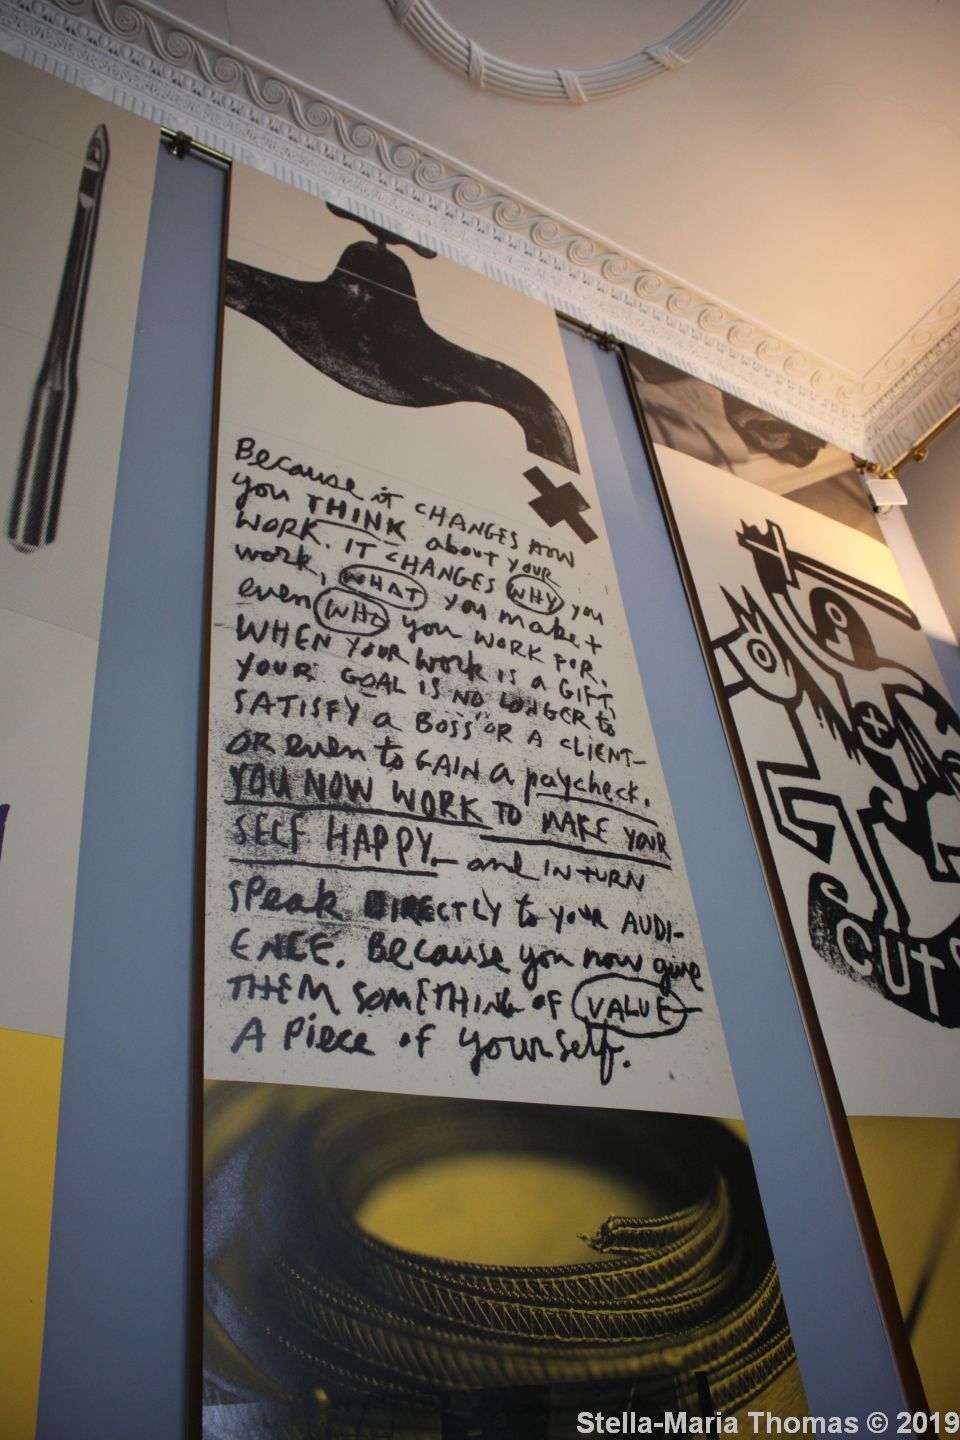 Because it CHANGES HOW
you THINK about YOUR
WORK. IT CHANGES WHY you
work, WHAT you make +
even WHO you WORK FOR.
WHEN YOUR work is a GIFT,
YOUR GOAL IS NO LONGER to
SATISFY a BOSS OR A CLIENT—
OR even to GAIN a paycheck.
YOU NOW WORK TO MAKE YOUR
SELF HAPPY— and IN TURN
SPeak DIRECTLY to YOUR AUDI-
ENCE. Because you now give
THEM SOMETHING OF VALUE—
A Piece of yourself.
CUT
Stella-Maria Thomas © 2019